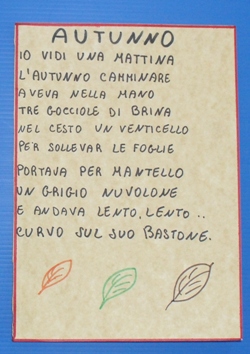 AUTUNNO
IO VIDI UNA MATTINA
L'AUTUNNO CAMMINARE
AVEVA NELLA MANO
TRE GOCCIOLE DI BRINA
NEL CESTO UN VENTICELLO
PER SOLLEVAR LE FOGLIE
PORTAVA PER MANTELLO
UN GRIGIO NUVOLONE
E ANDAVA LENTO, LENTO..
CURVO SUL SUO BASTONE.